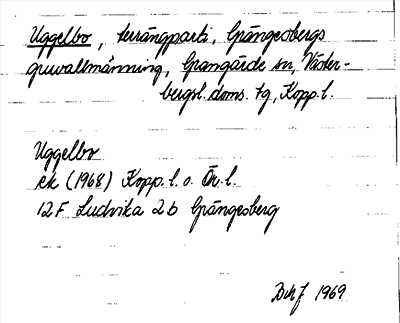 Uggelbo, terrängparti, Grängesbergs
gruvallmänning, Grangärde sn, Väster-
bergsl. doms. tg, Kopp. l.
Uggelbo
ek (1968) Kopp. l. o. Ör. l.
12F Ludvika 2b Grängesberg
1969